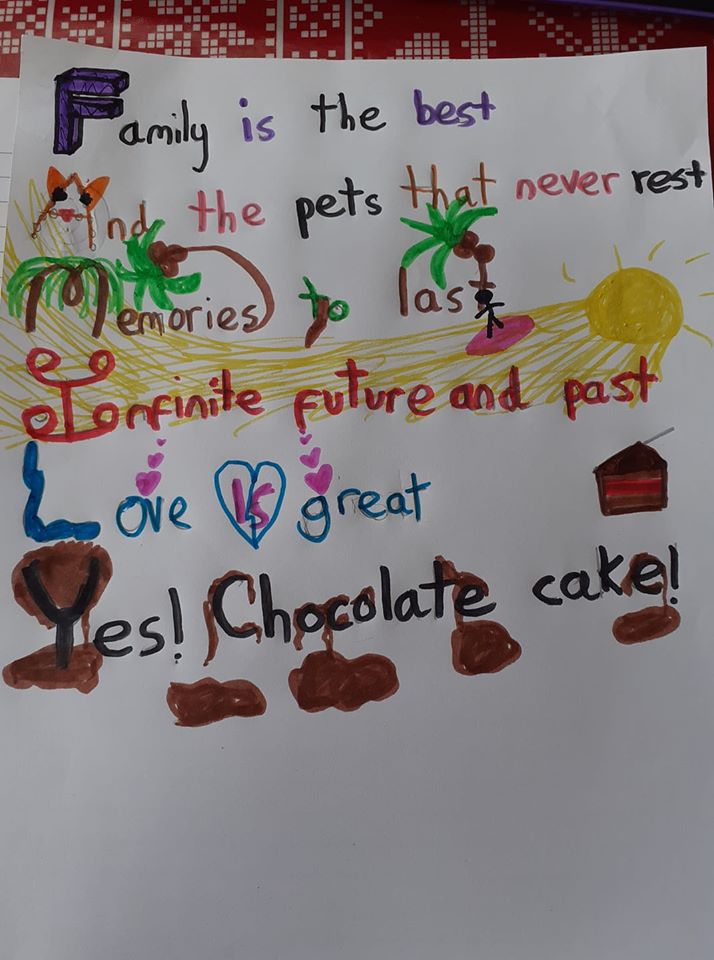 Family is the best
And the pets that never rest
Memories to last
Infinite future and past
Love is great
Yes! Chocolate cake!